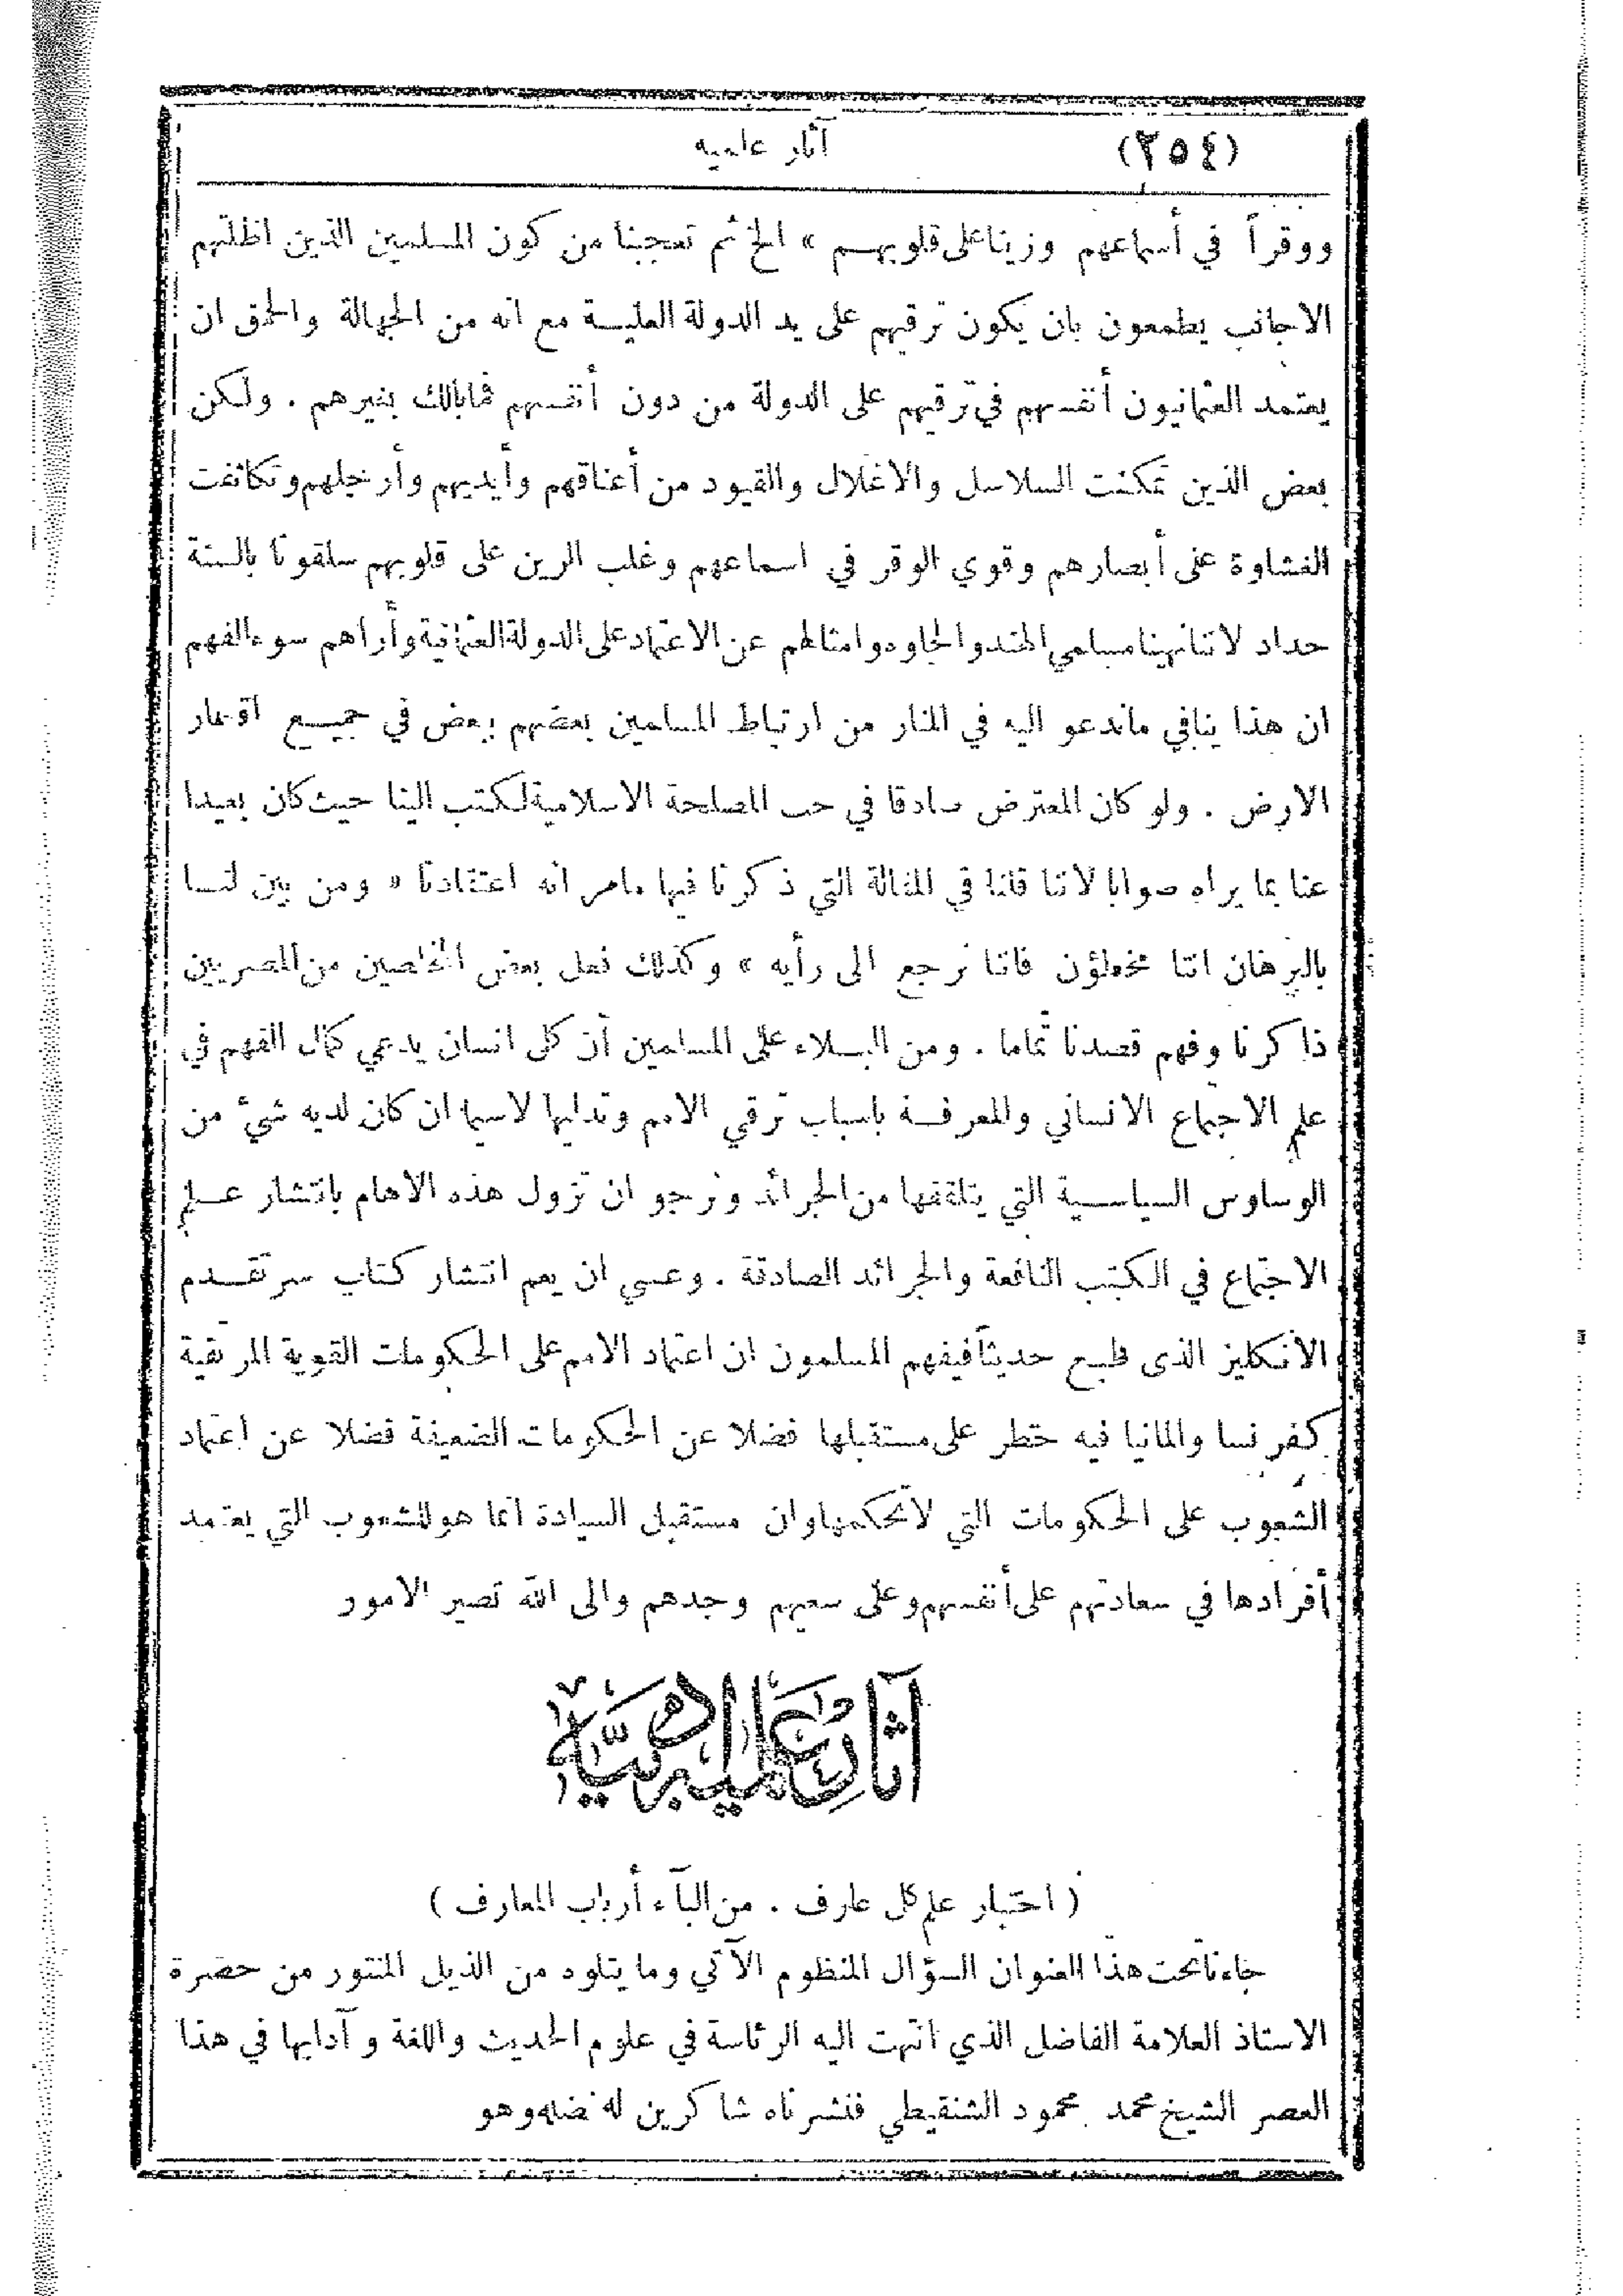 (٢٥٤) آثار علميه
ووقراً في أسماعهم وزيناعلى قلوبهم » الخ ثم تعجبنا من كون المسلمين الذين اظلتهم
الاجانب يطمعون بان يكون ترقيهم على يد الدولة العلية مع انه من الجهالة والحمق ان
يعتمد العثمانيون أنفسهم في ترقيهم على الدولة من دون أنفسهم فمابالك بغيرهم . ولكن
بعض الذين تمكنت السلاسل والاغلال والقيود من أعناقهم وأيديهم وأرجلهم وتكاثفت
الغشاوة على أبصارهم وقوي الوقر في اسماعهم وغلب الرين على قلوبهم سلقونا بالسنة
حداد لاننا نهينا مسلمي الهند والجاوه وامثالهم عن الاعتماد على الدولة العثمانية وأراهم سوء الفهم
ان هذا ينافي ماندعو اليه في المنار من ارتباط المسلمين بعضهم ببعض في جميع اقطار
الارض . ولو كان المعترض صادقا في حب المصلحة الاسلامية لكتب الينا حيث كان بعيدا
عنا بما يراه صوابا لاننا قلنا في المقالة التي ذكرنا فيها مامر انه اعتقادنا « ومن بين لنا
بالبرهان اننا مخطؤن فاننا نرجع الى رأيه » وكذلك فعل بعض المخلصين من المصريين
ذاكرنا وفهم قصدنا تماما . ومن البلاء على المسلمين أن كل انسان يدعي كمال الفهم في
علم الاجتماع الانساني والمعرفة باسباب ترقي الامم وتدليها لاسيما ان كان لديه شيء من
الوساوس السياسية التي يتلقفها من الجرائد ونرجو ان تزول هذه الاهام بانتشار علم
الاجتماع في الكتب النافعة والجرائد الصادقة . وعسي ان يعم انتشار كتاب سر تقدم
الانكليز الذى طبع حديثاً فيفهم المسلمون ان اعتماد الامم على الحكومات القوية المرتقية
كفرنسا والمانيا فيه خطر على مستقبلها فضلا عن الحكومات الضعيفة فضلا عن اعتماد
الشعوب على الحكومات التي لاتحكمها وان مستقبل السيادة انما هو للشعوب التي يعتمد
أفرادها في سعادتهم على أنفسهم وعلى سعيهم وجدهم والى الله تصير الامور
آثار علمية ادبية
( اختبار علم كل عارف . من البآء أرباب المعارف )
جاءنا تحت هذا العنوان السؤال المنظوم الآتي وما يتلوه من الذيل المنثور من حضرة
الاستاذ العلامة الفاضل الذي انتهت اليه الرئاسة في علوم الحديث واللغة وآدابها في هذا
العصر الشيخ محمد محمود الشنقيطي فنشرناه شاكرين له فضله وهو